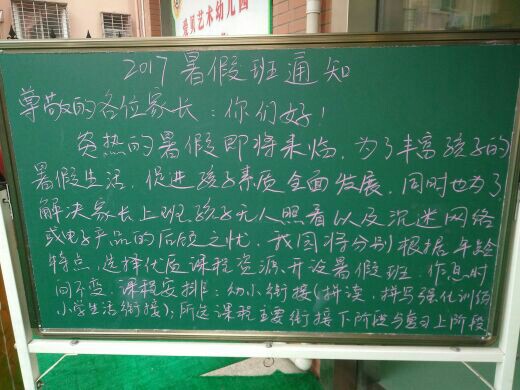 爱贝艺术幼儿园
2017暑假班通知
尊敬的各位家长：你们好！
炎热的暑假即将来临，为了丰富孩子的
暑假生活，促进孩子素质全面发展，同时也为了
解决家长上班孩子无人照看以及沉迷网络
或电子产品的后顾之忧，我园将分别根据年龄
特点，选择优质课程资源，开设暑假班，作息时
间不变，课程安排：幼小衔接（拼读，拼写强化训练
小学生活衔接）；所选课程主要衔接下阶段与复习上阶段